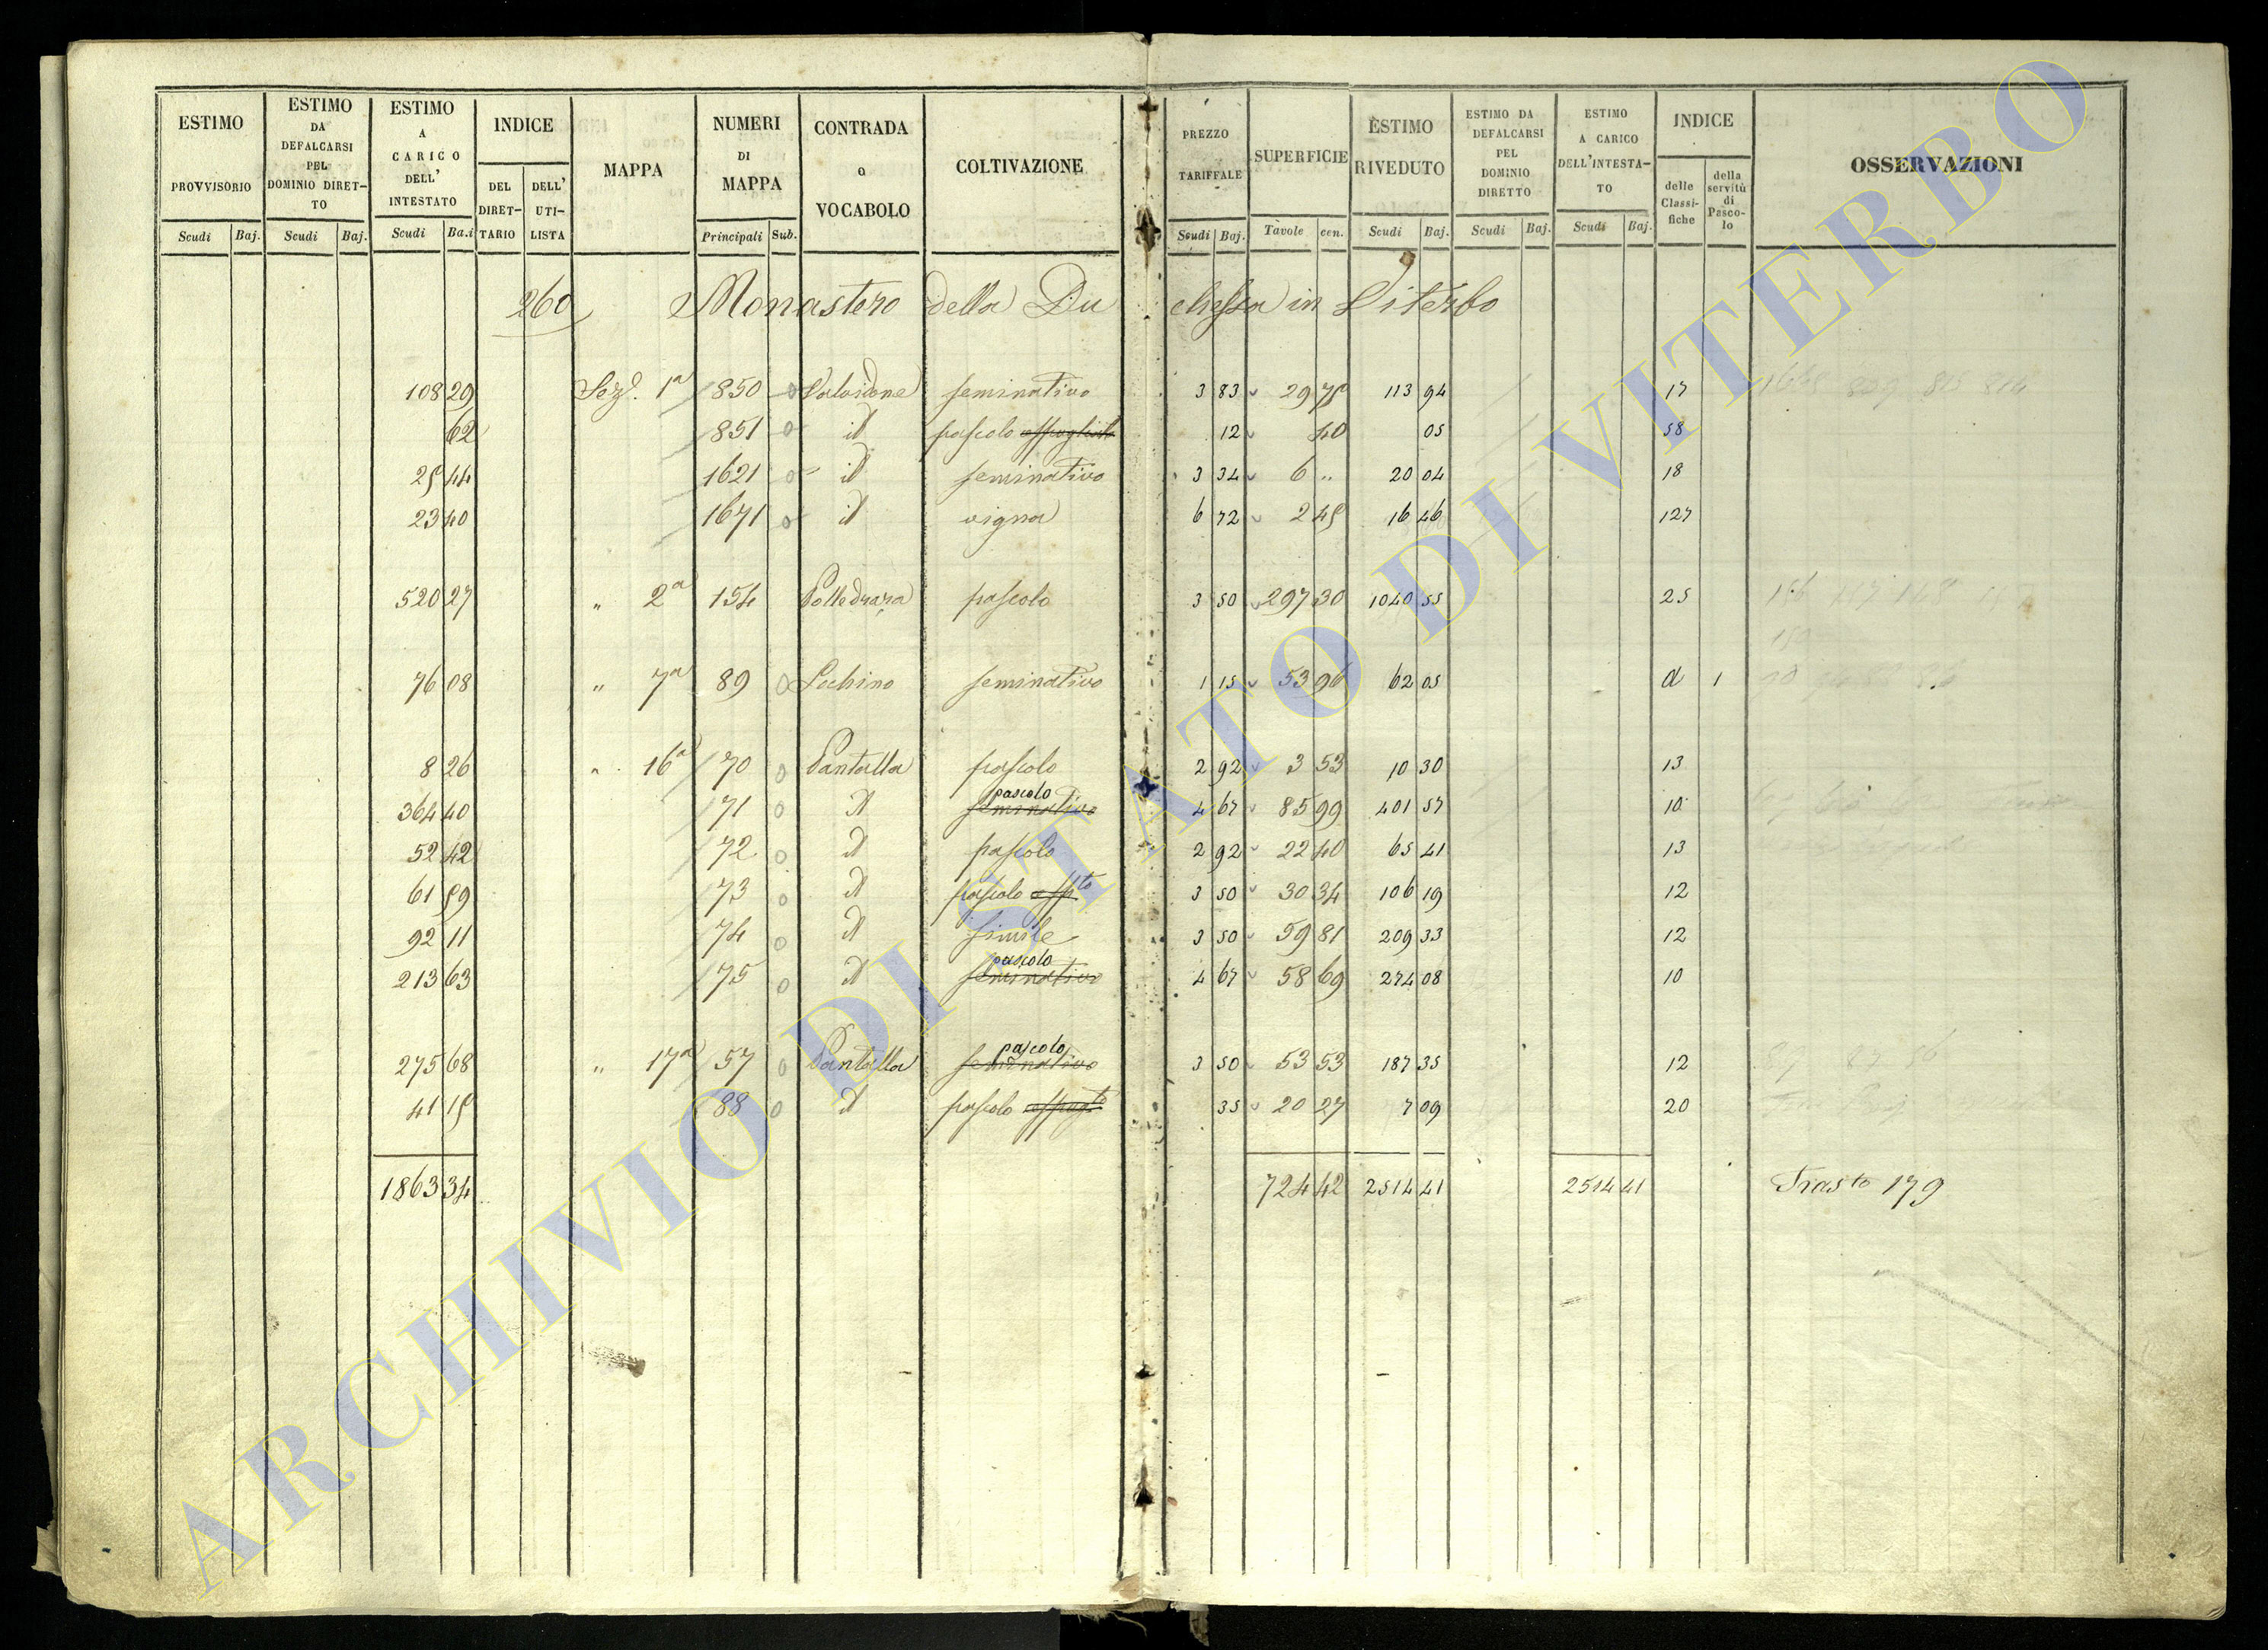 ESTIMO PROVVISORIO
Scudi Baj.
ESTIMO DA DEFALCARSI PEL DOMINIO DIRET-TO
Scudi Baj.
ESTIMO A CARICO DELL' INTESTATO
Scudi Ba.i
INDICE
DEL DIRET-TARIO
DELL' UTI-LISTA
MAPPA
NUMERI DI MAPPA
Principali Sub.
CONTRADA o VOCABOLO
COLTIVAZIONE
PREZZO TARIFFALE
Scudi Baj.
SUPERFICIE
Tavole cen.
ESTIMO RIVEDUTO
Scudi Baj.
ESTIMO DA DEFALCARSI PEL DOMINIO DIRETTO
Scudi Baj.
ESTIMO A CARICO DELL'INTESTA-TO
Scudi Baj.
INDICE
delle Classi-fiche
della servitù di Pasco-lo
OSSERVAZIONI
260 Monastero della Duchessa in Viterbo
108 29 Sez. 1a 850 0 seminativo 3 83 29 75 113 94 17
62 851 0 id pascolo 12 40 05 58
25 44 1621 0 id seminativo 3 34 6 " 20 04 18
23 40 1671 0 id vigna 6 72 2 45 16 46 127
520 27 " 2a 154 Polledrara pascolo 3 50 297 30 1040 55 25
76 08 " 7a 89 0 seminativo 1 15 53 96 62 05 d 1
8 26 " 16a 70 0 Pantalla pascolo 2 92 3 53 10 30 13
364 40 71 0 id seminativo pascolo 4 67 85 99 401 57 10
52 42 72 0 id pascolo 2 92 22 40 65 41 13
61 59 73 0 id pascolo 3 50 30 34 106 19 12
92 11 74 0 id simile 3 50 59 81 209 33 12
213 63 75 0 id seminativo pascolo 4 67 58 69 274 08 10
275 68 " 17a 57 0 Pantalla seminativo pascolo 3 50 53 53 187 35 12
41 15 88 0 id pascolo 35 20 27 7 09 20
1863 34 724 42 2514 41 2514 41 Trasto 179
ARCHIVIO DI STATO DI VITERBO